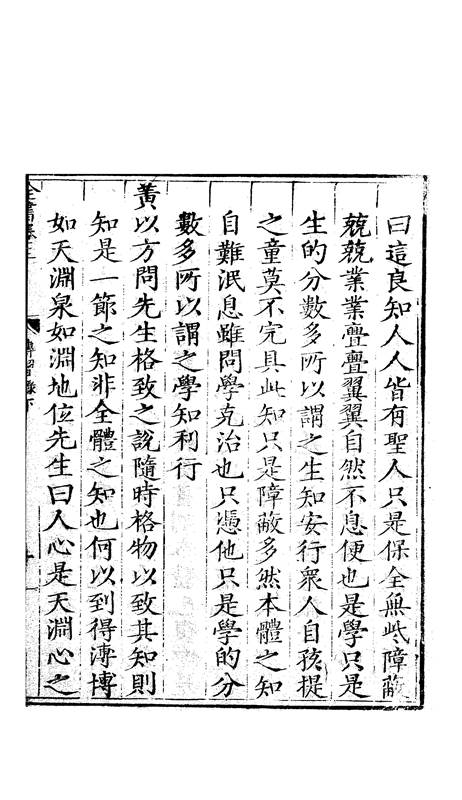 曰這良知人人皆有聖人只是保全無些障蔽
兢兢業業亹亹翼翼自然不息便也是學只是
生的分數多所以謂之生知安行衆人自孩提
之童莫不完具此知只是障蔽多然本體之知
自難泯息雖問學克治也只憑他只是學的分
數多所以謂之學知利行
黃以方問先生格致之說隨時格物以致其知則
知是一節之知非全體之知也何以到得溥博
如天淵泉如淵地位先生曰人心是天淵心之
全書卷三
傳習錄下